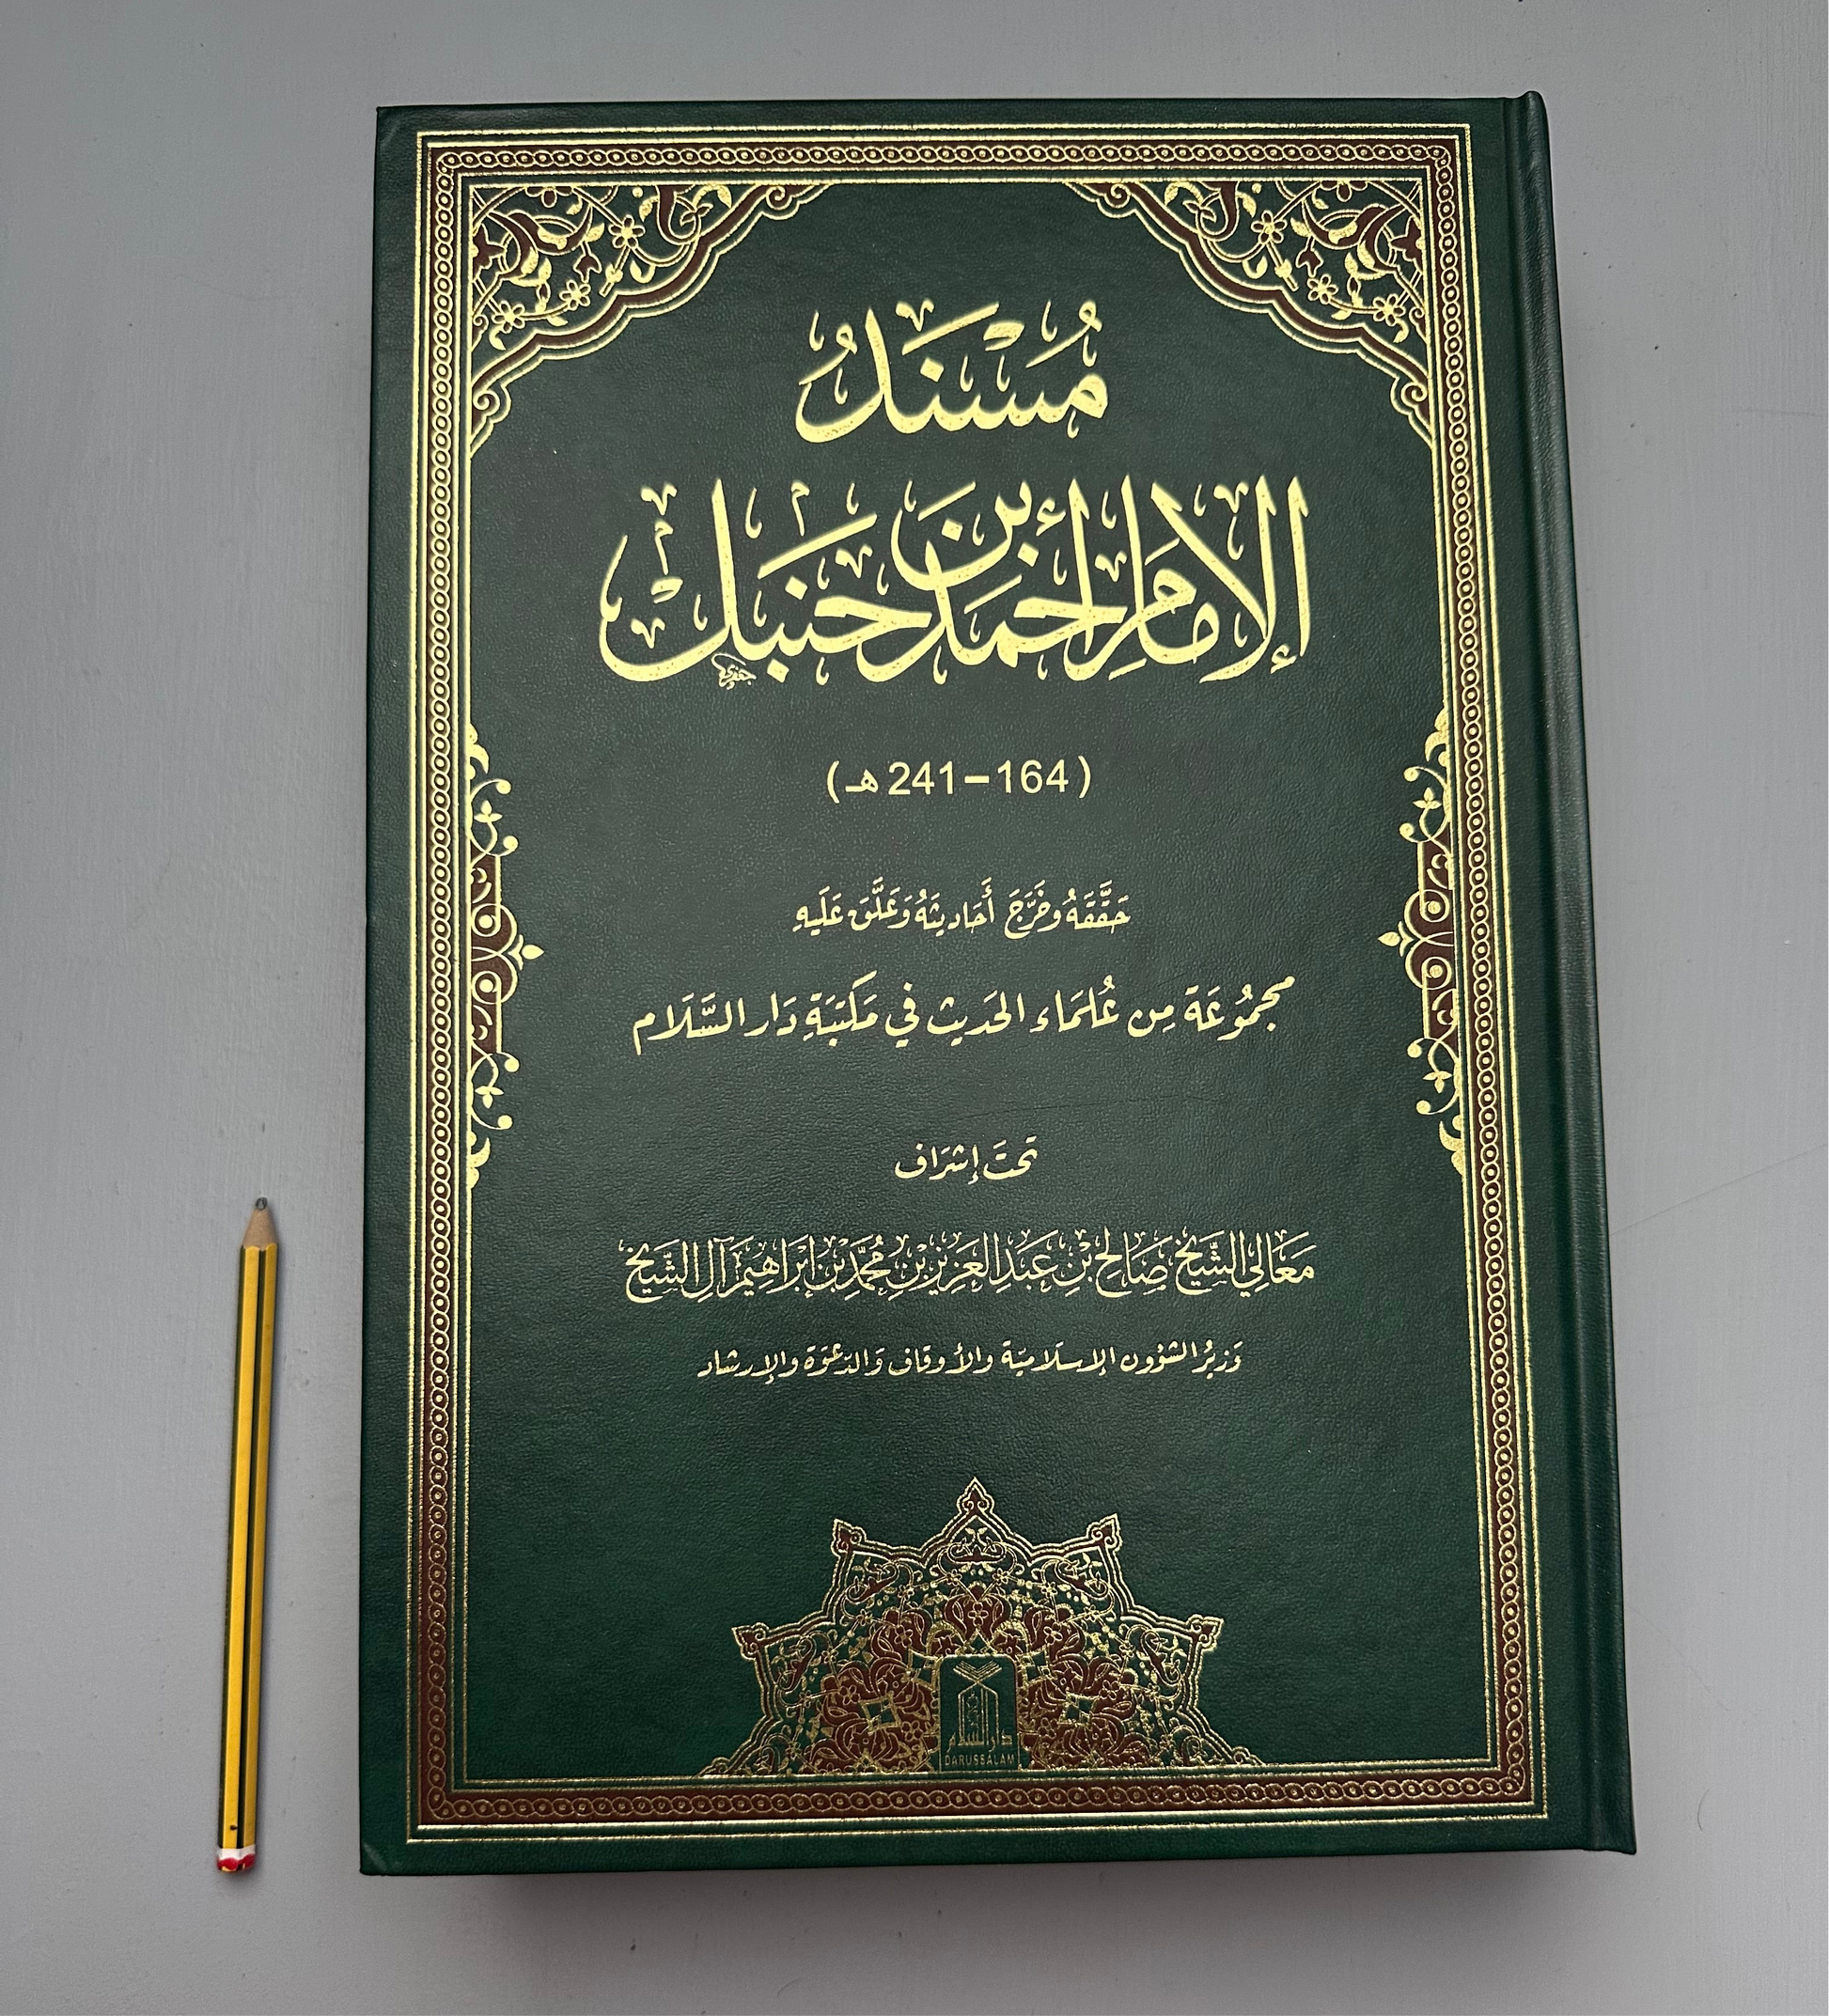 مُسْنَدُ
الإمَامِ أحمَد بن حَنبَل
(164–241 هـ)
حَقَّقَهُ وَخَرَّجَ أَحَادِيثَهُ وَعَلَّقَ عَلَيهِ
مجمُوعَة مِن عُلمَاء الحَديث في مَكتبَةِ دَار السَّلَام
تحتَ إشرَاف
مَعَالي الشَّيخ صَالِح بْن عَبدِ العَزِيز بن مُحمَّد بْن إبْرَاهِيمَ آلِ الشَّيخ
وَزيرُ الشؤون الإسلَاميّة والأوقاف وَالدّعوَة والإرشاد
دار السلام
DARUSSALAM